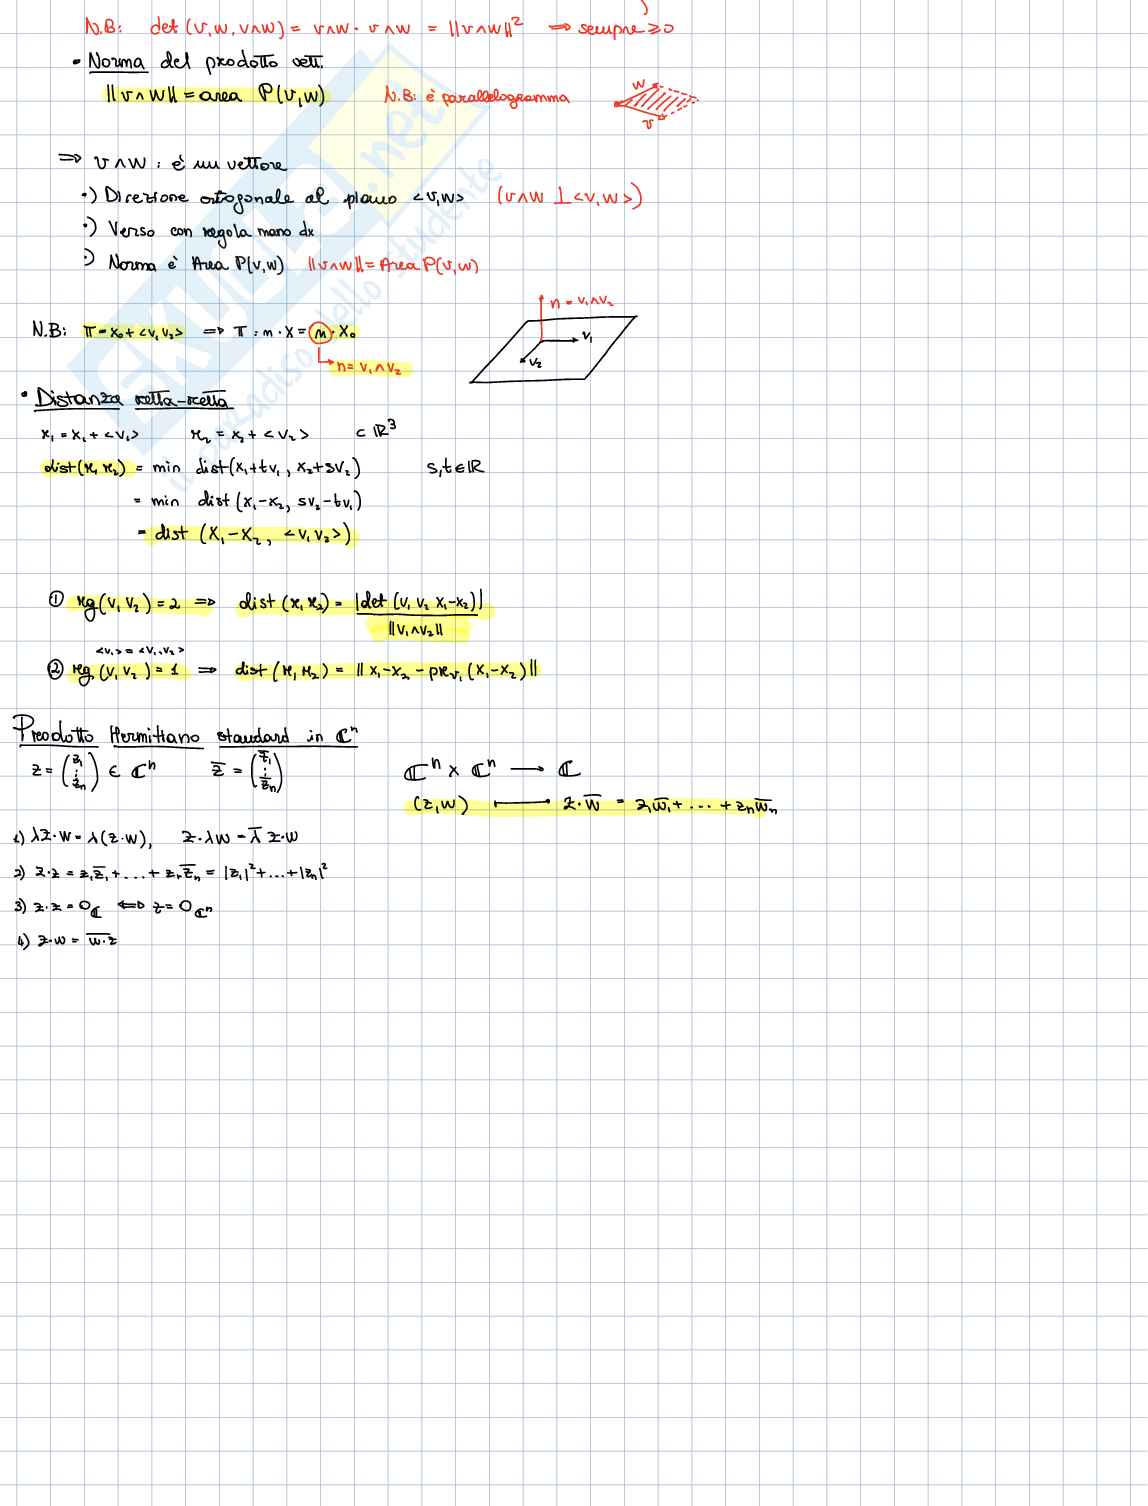 N.B: det (v, w, v∧w) = v∧w · v∧w = ||v∧w||² ⇒ sempre ≥ 0
• Norma del prodotto vett.
||v∧w|| = area P(v,w) N.B: è parallelogramma
w
v
⇒ v∧w : è un vettore
·) Direzione ortogonale al piano <v,w> (v∧w ⊥ <v,w>)
·) Verso con regola mano dx
·) Norma è Area P(v,w) ||v∧w|| = Area P(v,w)
N.B: π = x₀ + <v₁ v₂> ⇒ π : n · x = n · x₀
n = v₁∧v₂
n = v₁∧v₂
v₁
v₂
• Distanza retta-retta
r₁ = x₁ + <v₁> r₂ = x₂ + <v₂> ⊂ ℝ³
dist(r₁ r₂) = min dist(x₁+tv₁, x₂+sv₂) s,t ∈ ℝ
= min dist (x₁-x₂, sv₂-tv₁)
= dist (x₁-x₂, <v₁ v₂>)
① rg(v₁ v₂) = 2 ⇒ dist (r₁ r₂) = |det (v₁ v₂ x₁-x₂)|
||v₁∧v₂||
<v₁> = <v₁,v₂>
② rg (v₁ v₂) = 1 ⇒ dist (r₁, r₂) = || x₁-x₂ - pr_v₁ (x₁-x₂) ||
Prodotto Hermitiano standard in ℂⁿ
z = (z₁ ⋮ zₙ) ∈ ℂⁿ z̄ = (z̄₁ ⋮ z̄ₙ) ℂⁿ × ℂⁿ ⟶ ℂ
(z,w) ⟼ z·w̄ = z₁w̄₁ + ... + zₙw̄ₙ
1) λz·w = λ(z·w), z·λw = λ̄ z·w
2) z·z = z₁z̄₁ + ... + zₙz̄ₙ = |z₁|² + ... + |zₙ|²
3) z·z = 0_ℂ ⇔ z = 0_ℂⁿ
4) z·w = \overline{w·z}